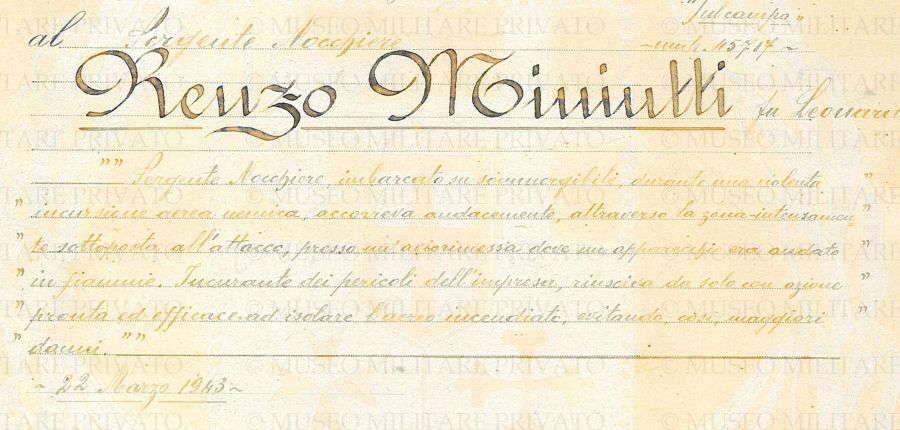 "Sulcampo"
al Sergente Nocchiere ~ matr. 45717 ~
Renzo Miniutti fu Leonardo
"" Sergente Nocchiere, imbarcato su sommergibili, durante una violenta "
" incursione aerea nemica, accorreva audacemente, attraverso la zona intensamen "
" te sottoposta all'attacco, presso un'aviorimessa dove un apparecchio era andato "
" in fiamme. Incurante dei pericoli dell'impresa, riusciva da solo con azione "
" pronta ed efficace ad isolare l'aereo incendiato, evitando, così, maggiori "
" danni. ""
~ 22 Marzo 1943 ~
© MUSEO MILITARE PRIVATO